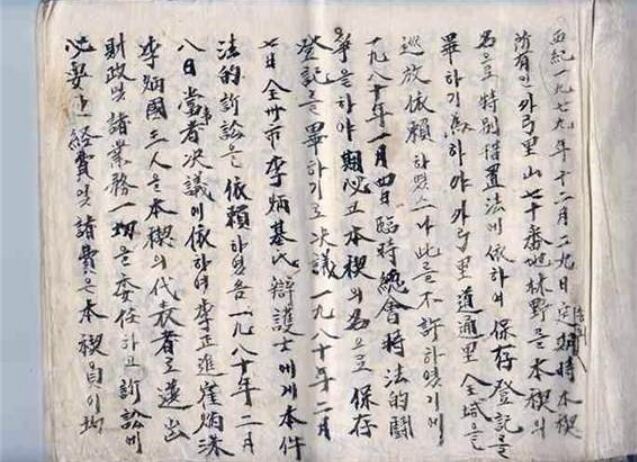 西紀一九七九年十二月二九日定期時本稧
所有인 카弓里山七十番地林野를 本稧의
名으로 特別措置法에 依하여 保存登記를
畢하기 爲하야 카弓里 道通里 全域을
巡放依賴하였으나 此를 不許하였기에
一九八十年一月四日 臨時總會時 法的鬪
爭을 하야 期必코 本稧의 名으로 保存
登記를 畢하기로 決議 一九八十年二月
七日 全州市 李炳基氏 辯護士에게 本件
法的訴訟을 依賴하였음 一九八十年二月
八日 當事者決議에 依하여 李正進 崔炳洙
李炳國 三人을 本稧의 代表者로 選出
財政및 諸業務一切을 委任하고 訴訟에
必要한 経費및 諸費은 本稧員이